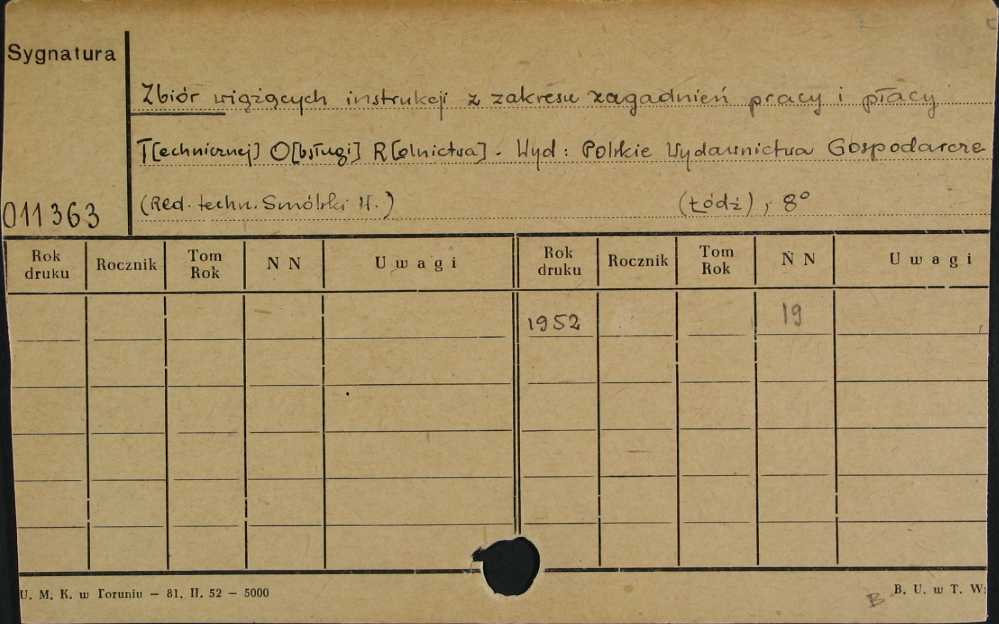 Sygnatura
Zbiór wiążących instrukcji z zakresu zagadnień pracy i płacy
T[echnicznej] O[bsługi] R[olnictwa]. Wyd: Polskie Wydawnictwa Gospodarcze
011363 (Red. techn. Smólski H.) (Łódź), 8°
Rok druku Rocznik Tom Rok N N Uwagi Rok druku Rocznik Tom Rok N N Uwagi
1952 19
U. M. K. w Toruniu – 81. II. 52 – 5000 B B. U. w T. W: